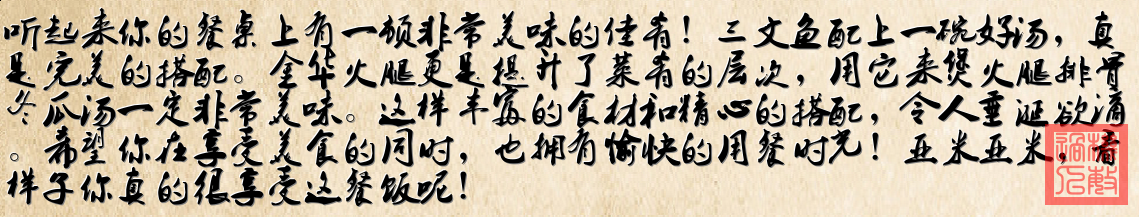 听起来你的餐桌上有一顿非常美味的佳肴！三文鱼配上一碗好汤，真
是完美的搭配。金华火腿更是提升了菜肴的层次，用它来煲火腿排骨
冬瓜汤一定非常美味。这样丰富的食材和精心的搭配，令人垂涎欲滴
。希望你在享受美食的同时，也拥有愉快的用餐时光！亚米亚米，看
样子你真的很享受这餐饭呢！